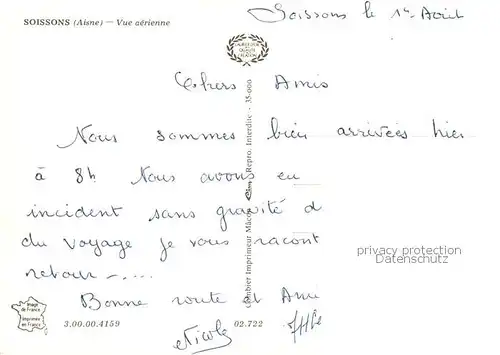 SOISSONS (Aisne) — Vue aérienne
Soissons le 1er Août
LAURÉAT DE LA QUALITÉ CRÉATION
Chers Amis
Nous sommes bien arrivées hier
à 8h Nous avons eu
incident sans gravité d
du voyage je vous racont
retour -....
Bonne route et Ami
Nicole
Combier Imprimeur Mâcon Repro. Interdite - 35-000
privacy protection
Datenschutz
Image
de France
Imprimée
en France
3.00.00.4159
02.722